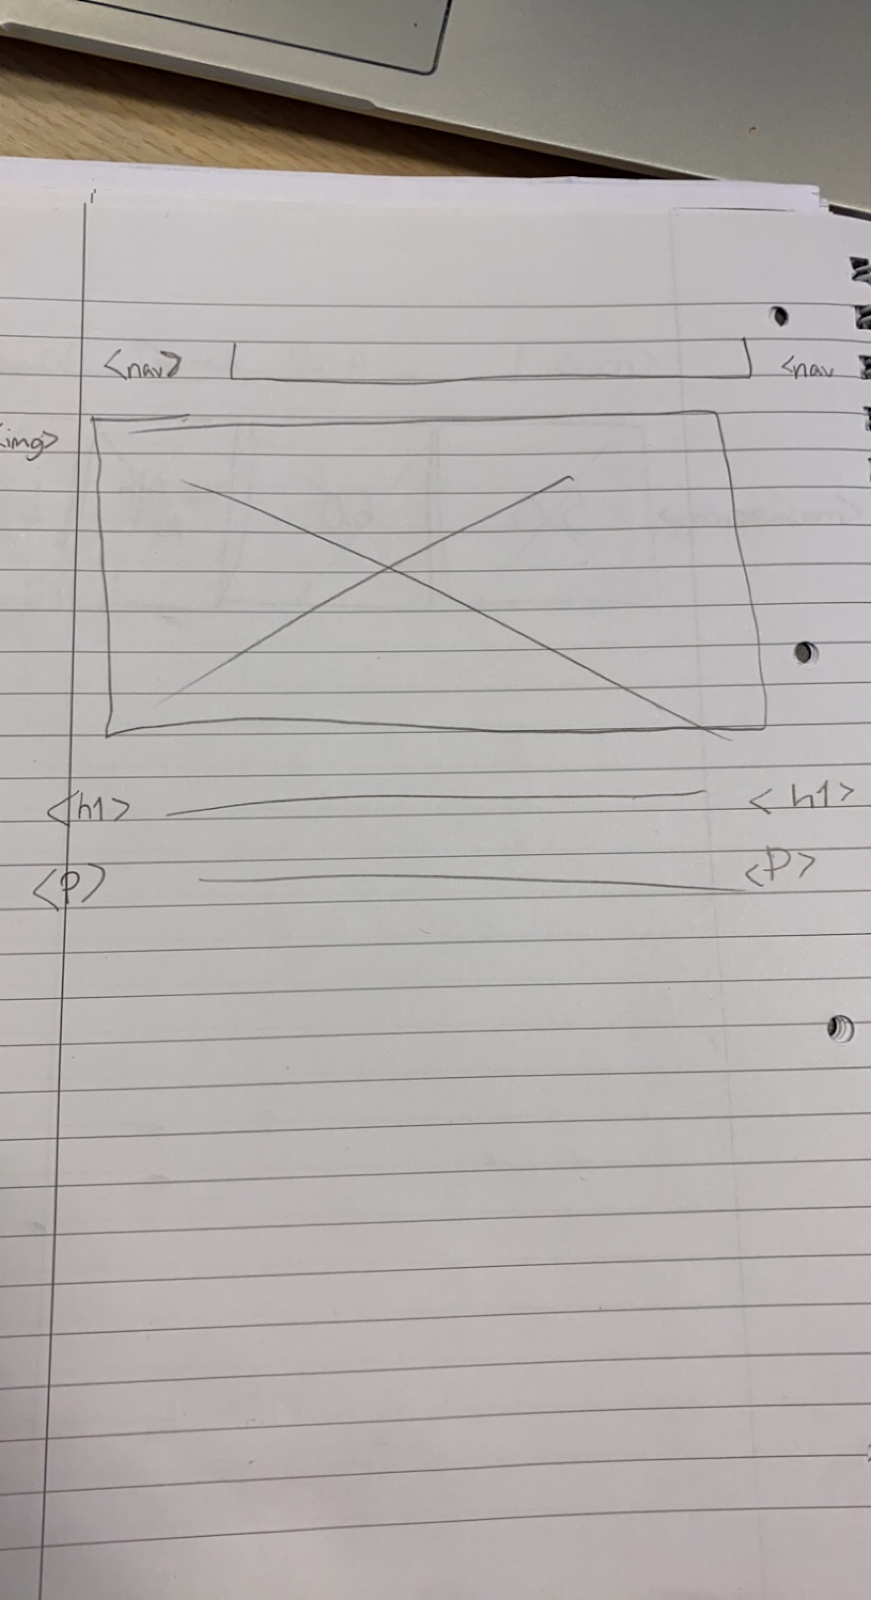 <nav> <nav
<img>
<h1> <h1>
<P> <P>